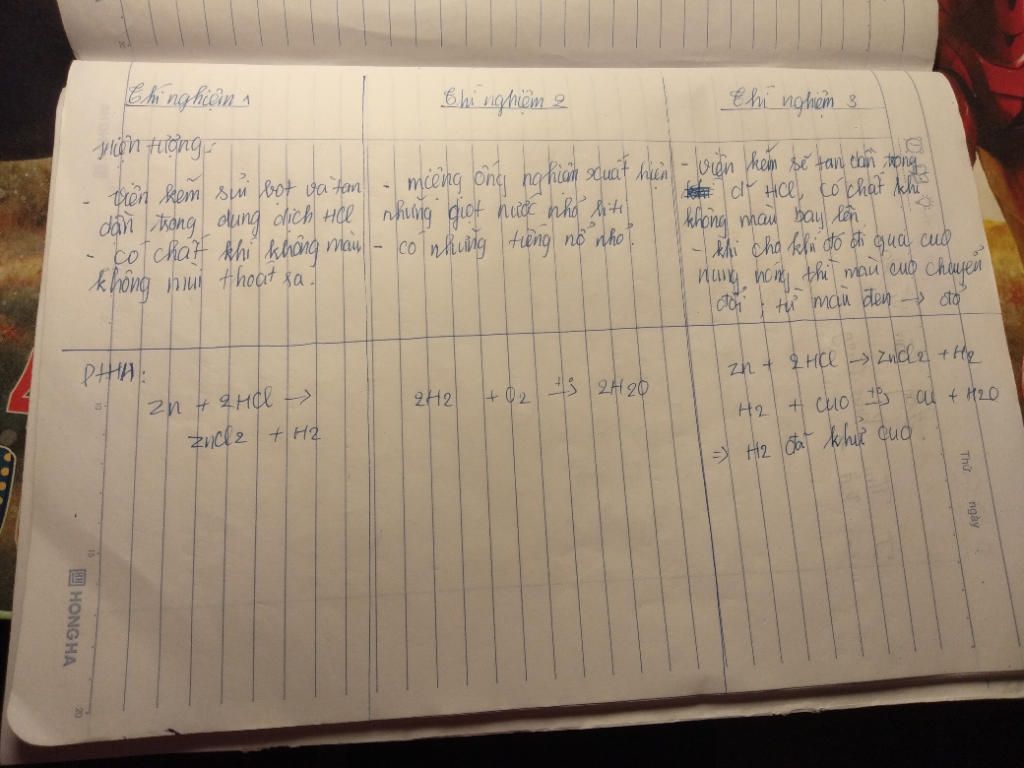 Thí nghiệm 1
Thí nghiệm 2
Thí nghiệm 3
Hiện tượng:
- viên kẽm sủi bọt và tan
dần trong dung dịch HCl
- có chất khí không màu
không mùi thoát ra.
- miệng ống nghiệm xuất hiện
những giọt nước nhỏ li ti
- có những tiếng nổ nhỏ.
- viên kẽm sẽ tan dần trong
d² HCl, có chất khí
không màu bay lên
- khi cho khí đó đi qua CuO
nung nóng thì màu CuO chuyển
đổi; từ màu đen → đỏ
PTHH:
Zn + 2HCl →
ZnCl2 + H2
2H2 + O2 →t° 2H2O
Zn + 2HCl → ZnCl2 + H2
H2 + CuO →t° Cu + H2O
=> H2 đã khử CuO.
Thứ ngày
HONG HA
10
15
20